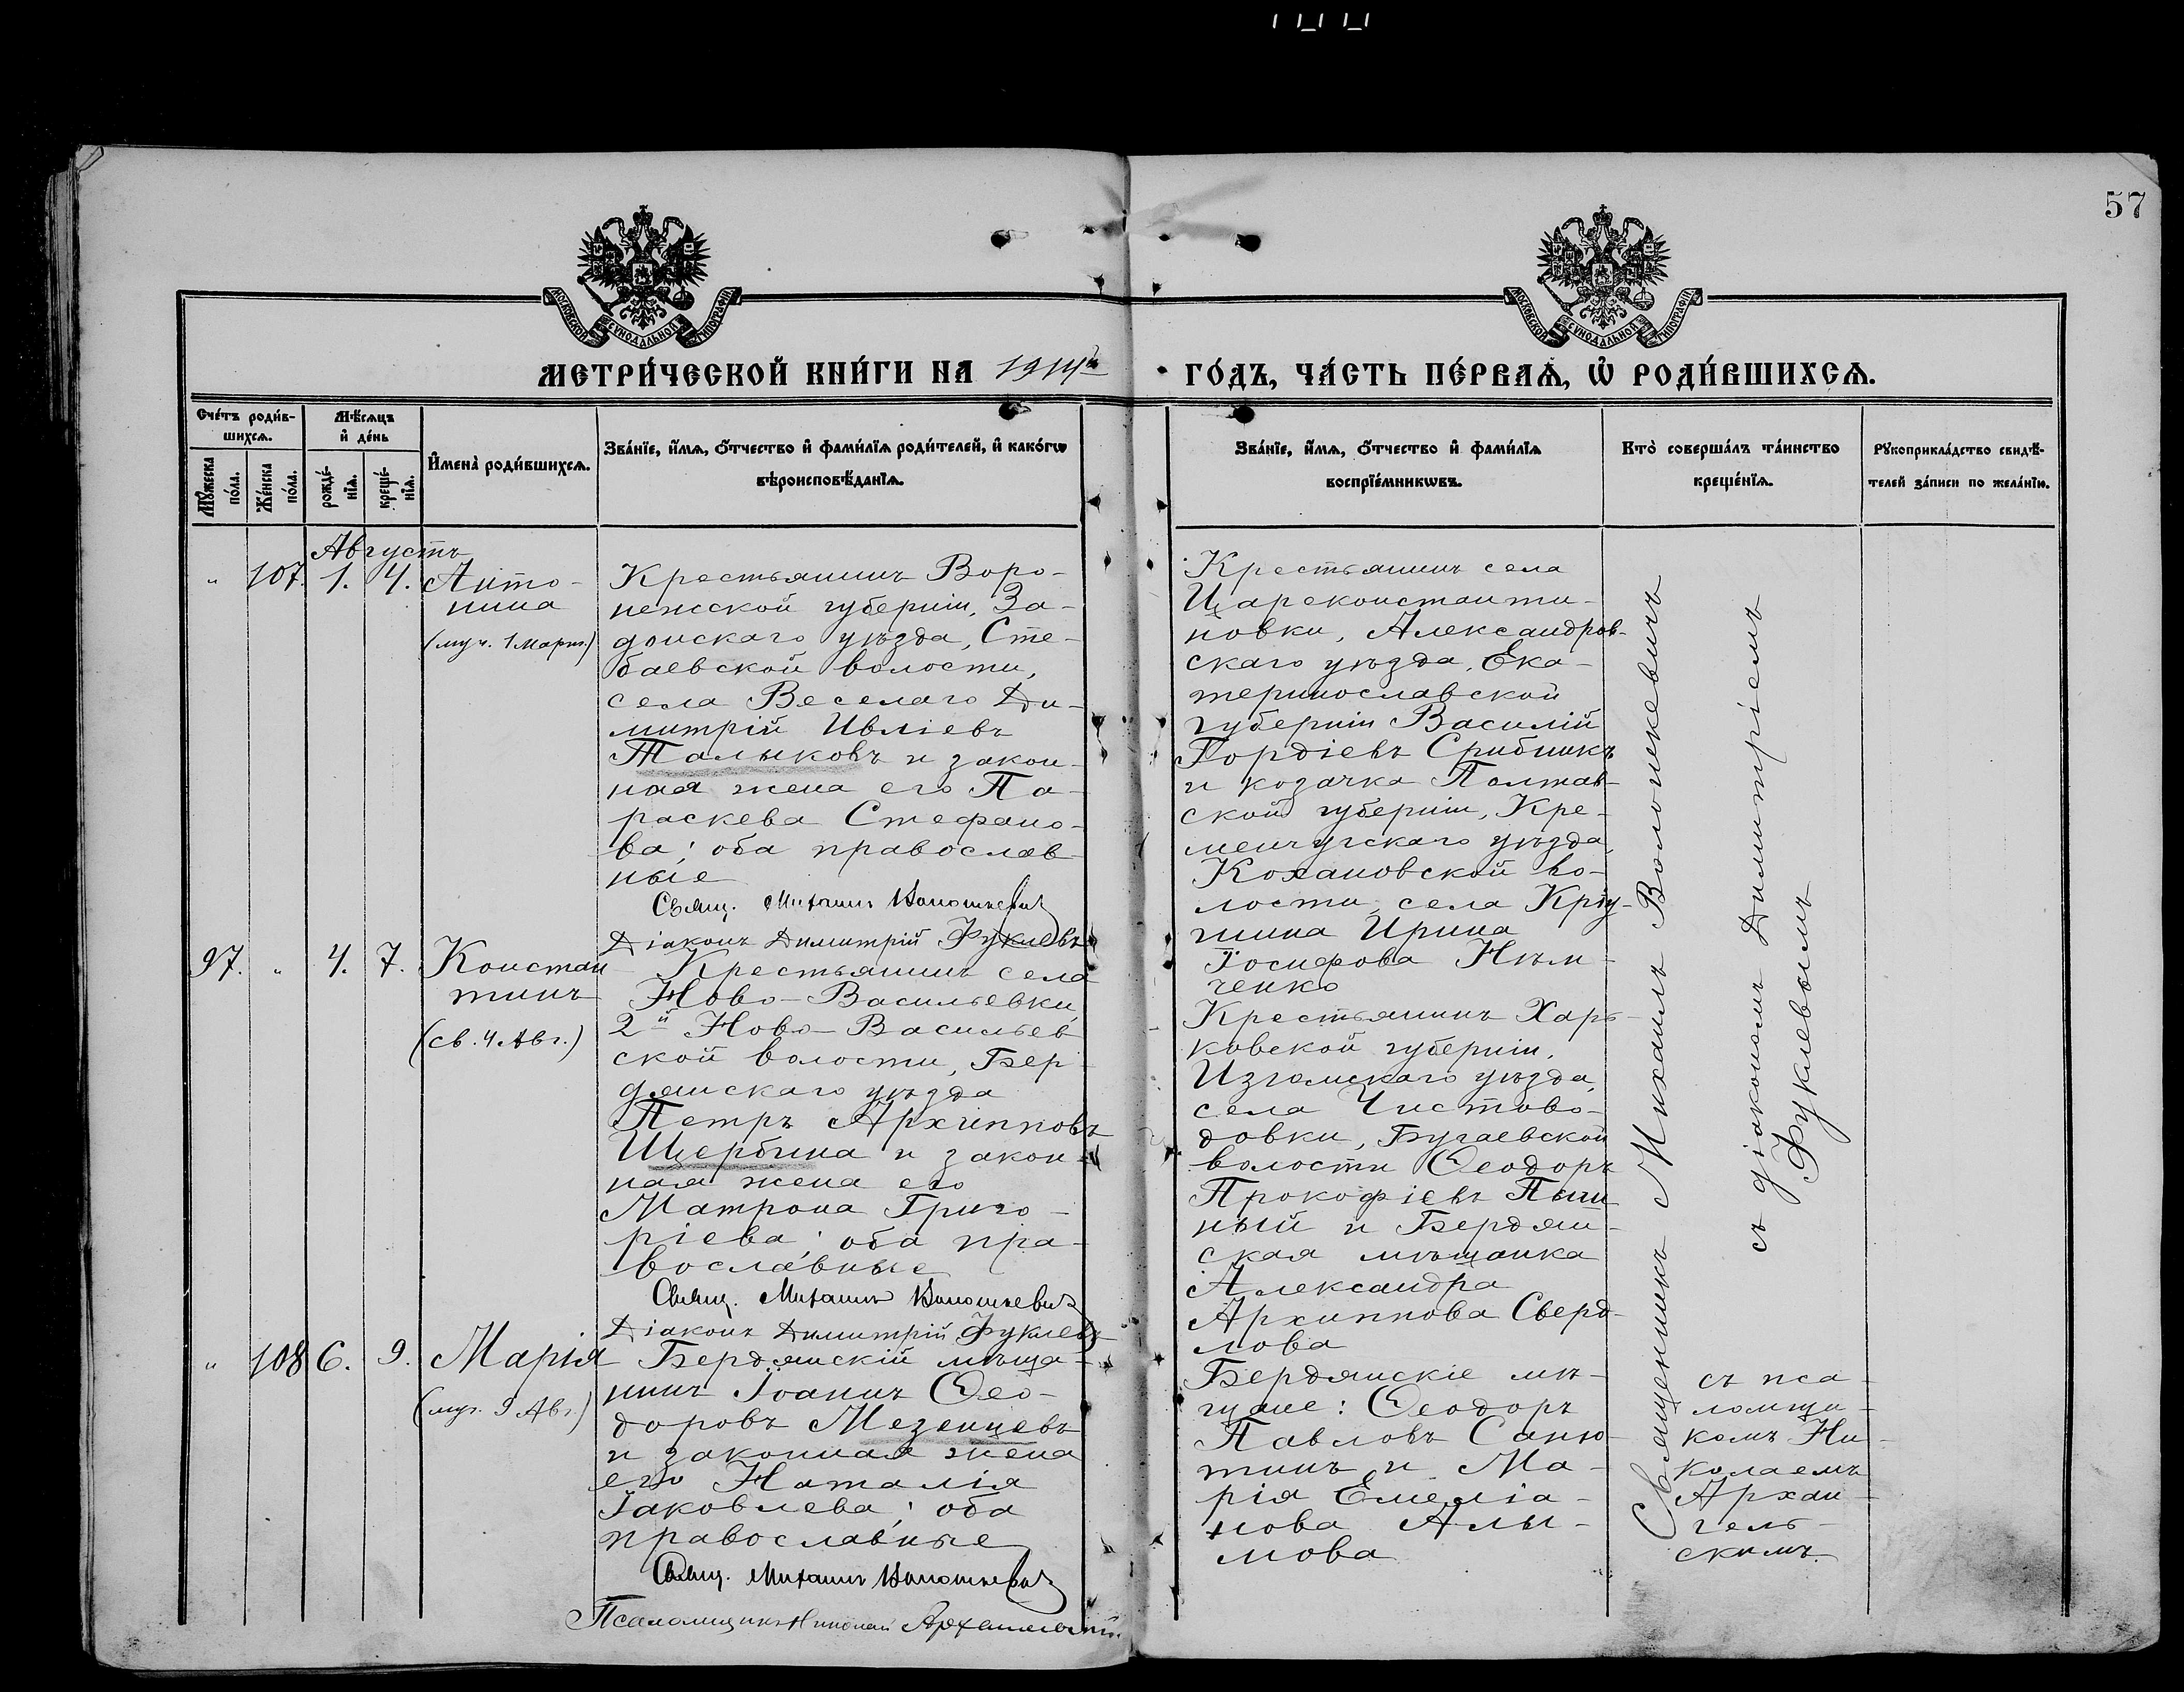 57
МОСКОВСКОЙ СѴНОДАЛЬНОЙ ТИПОГРАФІИ
МОСКОВСКОЙ СѴНОДАЛЬНОЙ ТИПОГРАФІИ
МЕТРИ́ЧЕСКОЙ КНИ́ГИ НА 1914й
ГО́ДЪ, ЧА́СТЬ ПЕ́РВАѦ, Ѡ҆ РОДИ́ВШИХСѦ.
Сче́тъ роди́в-
шихсѧ.
Мѣ́сѧцъ
и҆ де́нь
Мꙋ́жеска
по́ла.
Же́нска
по́ла.
рожде́-
нїѧ.
креще́-
нїѧ.
И҆мена̀ роди́вшихсѧ.
Зва́нїе, и҆́мѧ, ѻ҆́тчество и҆ фами́лїѧ роди́телей, и҆ како́гѡ
вѣроисповѣ́данїѧ.
Зва́нїе, и҆́мѧ, ѻ҆́тчество и҆ фами́лїѧ
воспрїе́мникѡвъ.
Кто̀ соверша́лъ та́инство
креще́нїѧ.
Рꙋкоприкла́дство свидѣ́-
телей за́писи по жела́нїю.
Августъ
" 107. 1. 4. Анто-
нина
(муч. 1 Марта.)
Крестьянинъ Воро-
нежской губерніи, За-
донскаго уѣзда, Сте-
баевской волости,
села Веселаго Ди-
митрій Ивліевъ
Талыковъ и закон-
ная жена его Па-
раскева Стефано-
ва; оба православ-
ные
Свящ. Михаилъ Волошкевичъ
Діаконъ Димитрій Фуклевъ
Крестьянинъ села
Цареконстанти-
новки, Александров-
скаго уѣзда, Ека-
теринославской
губерніи Василій
Гордіевъ Срибникъ
и козачка Полтав-
ской губерніи, Кре-
менчугскаго уѣзда,
Кохановской во-
лости, села Кріу-
шина Ирина
Іосифова Нѣм-
ченко
97. " 4. 7. Констан-
тинъ
(св. 4 Авг.)
Крестьянинъ села
Ново-Васильевки,
2й Ново-Васильев
ской волости, Бер-
дянскаго уѣзда
Петръ Архипповъ
Щербина и закон-
ная жена его
Матрона Григо-
ріева; оба пра-
вославные
Свящ. Михаилъ Волошкевичъ
Діаконъ Димитрій Фуклевъ
Крестьянинъ Харь-
ковской губерніи,
Изюмскаго уѣзда,
села Чистово-
довки, Бугаевской
волости Ѳеодоръ
Прокофіевъ Пыш
ный и Бердян-
ская мѣщанка
Александра
Архиппова Сверд-
лова
" 108 6. 9. Марія
(муч. 9 Авг.)
Бердянскій мѣща-
нинъ Іоаннъ Ѳео-
доровъ Мезенцевъ
и законная жена
его Наталія
Іаковлева; оба
православные
Свящ. Михаилъ Волошкевичъ
Псаломщикъ Николай Архангельскій
Бердянскіе мѣ-
щане: Ѳеодоръ
Павловъ Саню-
тинъ и Ма-
рія Емеліа-
нова Алы-
мова
Священникъ Михаилъ Волошкевичъ
съ діакономъ Димитріемъ
Фуклевымъ
съ пса-
ломщи-
комъ Ни-
колаемъ
Архан-
гель-
скимъ.